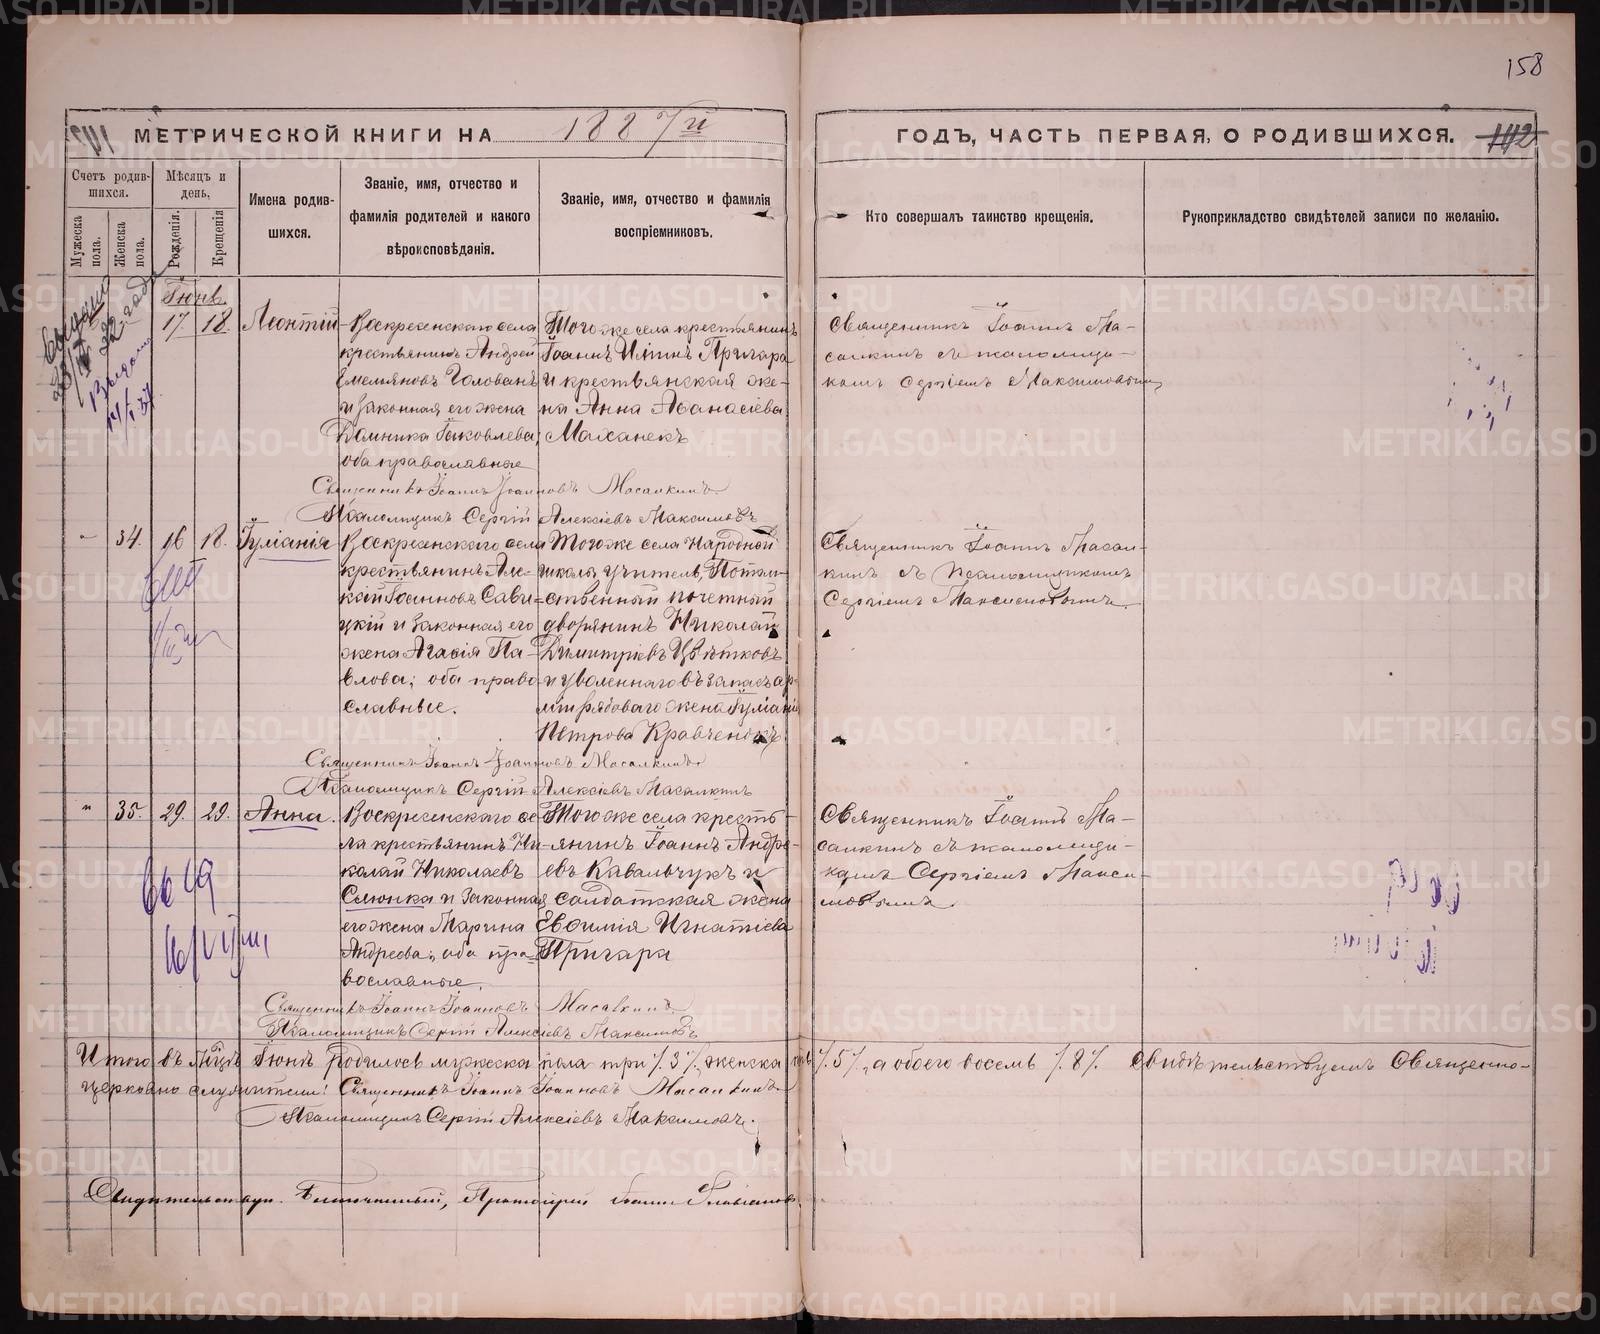 158
МЕТРИЧЕСКОЙ КНИГИ НА 1887й ГОДЪ, ЧАСТЬ ПЕРВАЯ, О РОДИВШИХСЯ. 112
Счетъ родив-
шихся.
Мужеска пола.
Женска пола.
Мѣсяцъ и
день.
Рожденія.
Крещенія
Имена родив-
шихся.
Званіе, имя, отчество и
фамилія родителей и какого
вѣроисповѣданія.
Званіе, имя, отчество и фамилія
воспріемниковъ.
Кто совершалъ таинство крещенія.
Рукоприкладство свидѣтелей записи по желанію.
Іюнь.
17. 18. Леонтій
Воскресенскаго села
крестьянинъ Андрей
Емельяновъ Голованъ
и законная его жена
Домника Іаковлева;
оба православные
Тогоже села крестьянинъ
Іоаннъ Ильинъ Пригара
и крестьянская же-
на Анна Аѳанасіева
Маханекъ
Священникъ Іоаннъ Ма-
салкинъ съ псаломщи-
комъ Сергіемъ Максимовымъ
Священникъ Іоаннъ Іоанновъ Масалкинъ
Псаломщикъ Сергій Алексіевъ Максимовъ
" 34. 16 18. Іуліанія
Воскресенскаго села
крестьянинъ Але-
ксѣй Іоанновъ Сави-
цкій и законная его
жена Агаѳія Па-
влова; оба право-
славные.
Тогоже села Народной
школы учитель, Потом-
ственный почетный
дворянинъ Николай
Димитріевъ Цвѣтковъ
и уволеннаго въ запасъ ар-
міи рядоваго жена Іуліанія
Петрова Кравченокъ
Священникъ Іоаннъ Масал-
кинъ съ Псаломщикомъ
Сергіемъ Максимовымъ
Священникъ Іоаннъ Іоанновъ Масалкинъ
Псаломщикъ Сергій Алексіевъ
" 35. 29. 29. Анна.
Воскресенскаго се-
ла крестьянинъ Ни-
колай Николаевъ
Слюнка и законная
его жена Марина
Андреева; оба пра-
вославные.
Тогоже села кресть-
янинъ Іоаннъ Андре-
евъ Ковальчукъ и
солдатская жена
Евѳимія Игнатіева
Пригара
Священникъ Іоаннъ Ма-
салкинъ съ псаломщи-
комъ Сергіемъ Макси-
мовымъ.
Священникъ Іоаннъ Іоанновъ Масалкинъ
Псаломщикъ Сергій Алексіевъ Максимовъ
Итого въ мцѣ Іюнѣ родилось мужеска пола три /.3/. женска /.5/., а обоего восемь /.8/. Свидѣтельствуемъ Священно-
церковно служители: Священникъ Іоаннъ Іоанновъ Масалкинъ
Псаломщикъ Сергій Алексіевъ Максимовъ.
Благочинный, Протоіерей Іоаннъ
METRIKI.GASO-URAL.RU